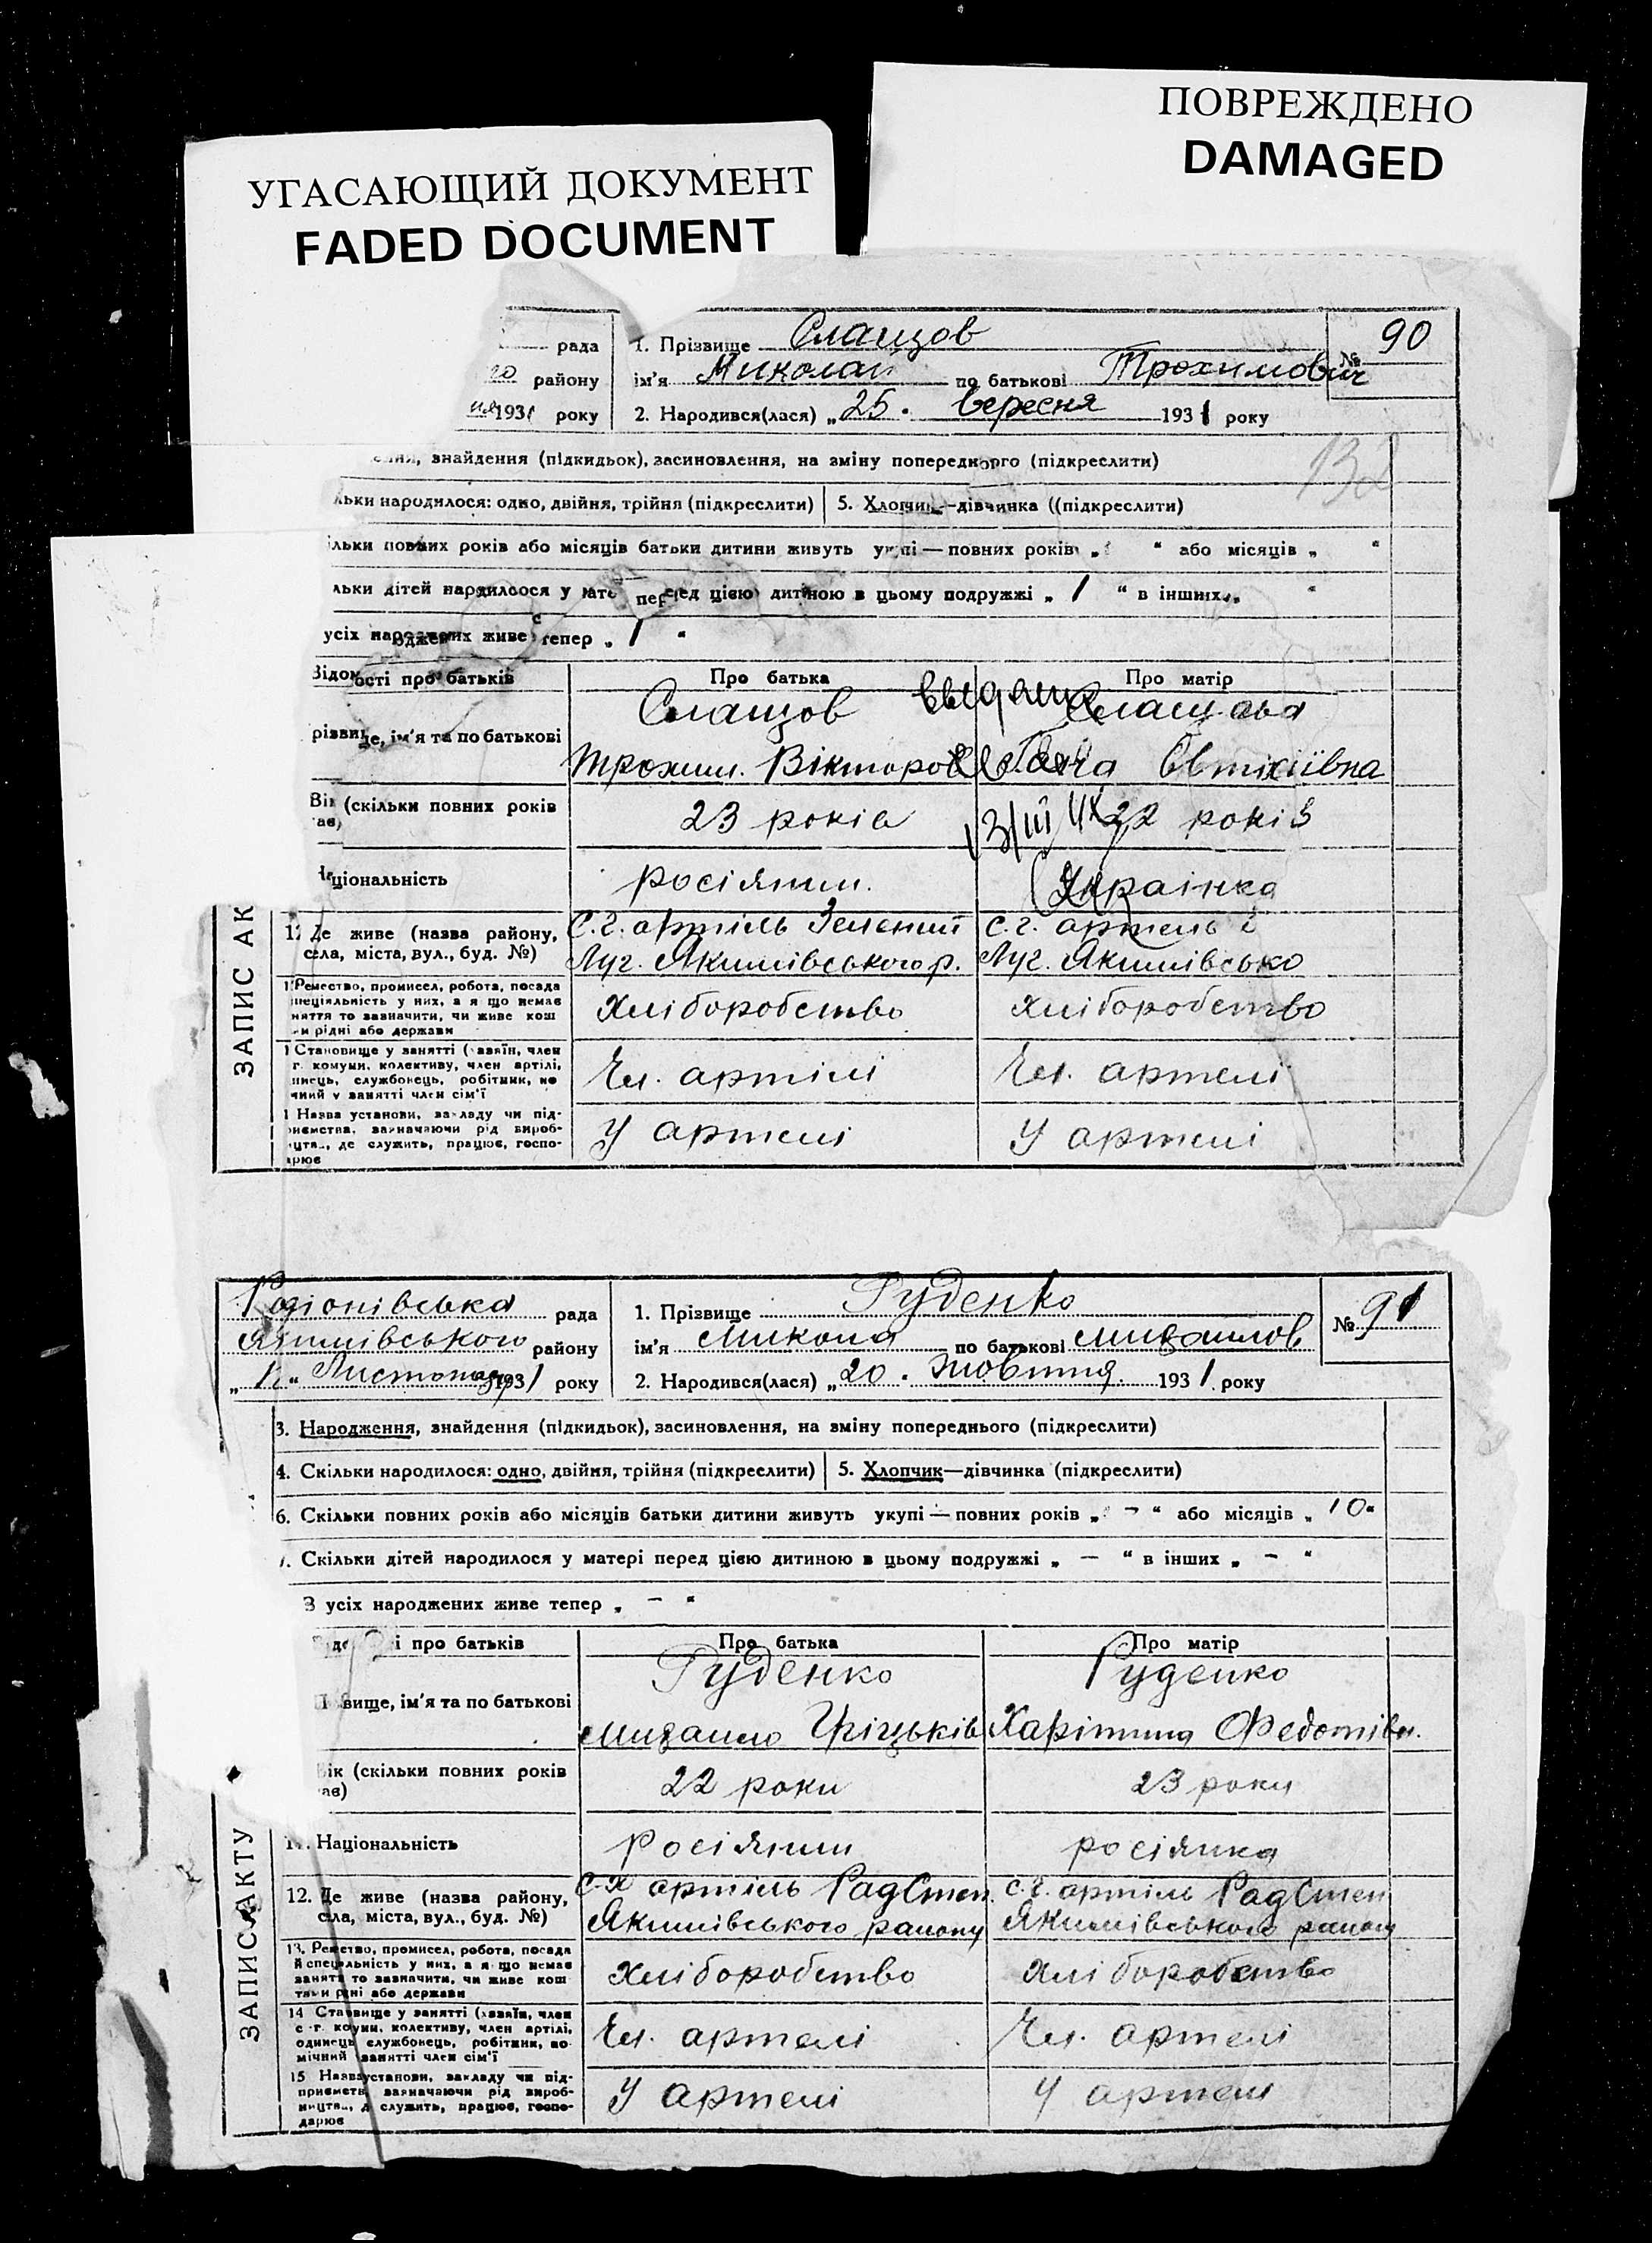 ПОВРЕЖДЕНО
DAMAGED
УГАСАЮЩИЙ ДОКУМЕНТ
FADED DOCUMENT
рада
району
1931 року
1. Прізвище Слащов
ім'я Миколай по батькові Трохимович
2. Народився(лася) „ 25 . вересня 1931 року
№ 90
знайдення (підкидьок), засиновлення, на зміну попереднього (підкреслити)
132
народилося: одно, двійня, трійня (підкреслити) 5. Хлопчик—дівчинка ((підкреслити)
повних років або місяців батьки дитини живуть укупі — повних років „ “ або місяців „ “
дітей народилося у перед цією дитиною в цьому подружжі „ 1 “ в інших „ “
усіх народжених живе тепер „ 1 “
Відомості про батьків Про батька Про матір
Слащов видана Слащова
ім'я та по батькові
Трохим. Вікторов Ганна Євтихіївна
Вік (скільки повних років
23 років 22 років
Національність росіянин. Українка
12. Де живе (назва району, села, міста, вул., буд. №)
С.г. артіль Зелений с.г. артель
Луг. Якимівського р. Луг. Якимівсько
Ремество, промисел, робота, посада
спеціяльність у них, а я що немає
няття то зазначити, чи живе кош
рідні або держави
хліборобство хліборобство
Становище у занятті (хазяїн, член
г. комуни, колективу, член артілі,
службовець, робітник,
у занятті член сім'ї
Чл. артілі Чл. артелі
Назва установи, закладу чи під-
зазначаючи рід вироб-
де служить, працює, госпо-
У артелі У артелі
ЗАПИС АК
Родіонівська рада
Якимівського району
„ “ Листопада 1931 року
1. Прізвище Руденко
ім'я Микола по батькові Михайлов
2. Народився(лася) „ 20 . жовтня. 1931. року
№ 91
3. Народження, знайдення (підкидьок), засиновлення, на зміну попереднього (підкреслити)
4. Скільки народилося: одно, двійня, трійня (підкреслити) 5. Хлопчик—дівчинка (підкреслити)
6. Скільки повних років або місяців батьки дитини живуть укупі — повних років „ – “ або місяців „ 10 “
7. Скільки дітей народилося у матері перед цією дитиною в цьому подружжі „ — “ в інших „ – “
З усіх народжених живе тепер „ — “
про батьків Про батька Про матір
Руденко Руденко
ім'я та по батькові
Михайло Гріцьків Харітина Федотівн.
Вік (скільки повних років
22 роки 23 роки
11. Національність росіянин росіянка
12. Де живе (назва району, села, міста, вул., буд. №)
С-х артіль РадСтеп. с.г. артіль РадСтеп
Якимівського району Якимівського району
13. Ремество, промисел, робота, посада
й спеціяльність у них, а я що немає
занять то зазначити, чи живе кош
тами рідні або держави
хліборобство хліборобство
14 Становище у занятті (хазяїн, член
с г. комуни, колективу, член артілі,
одинець службовець, робітник, по
мічний занятті член сім'ї
Чл. артелі Чл. артелі
15 Назва установи, закладу чи під-
приємств зазначаючи рід вироб-
ництва, д служить, працює, госпо-
дарює
У артелі У артелі
ЗАПИС АКТУ